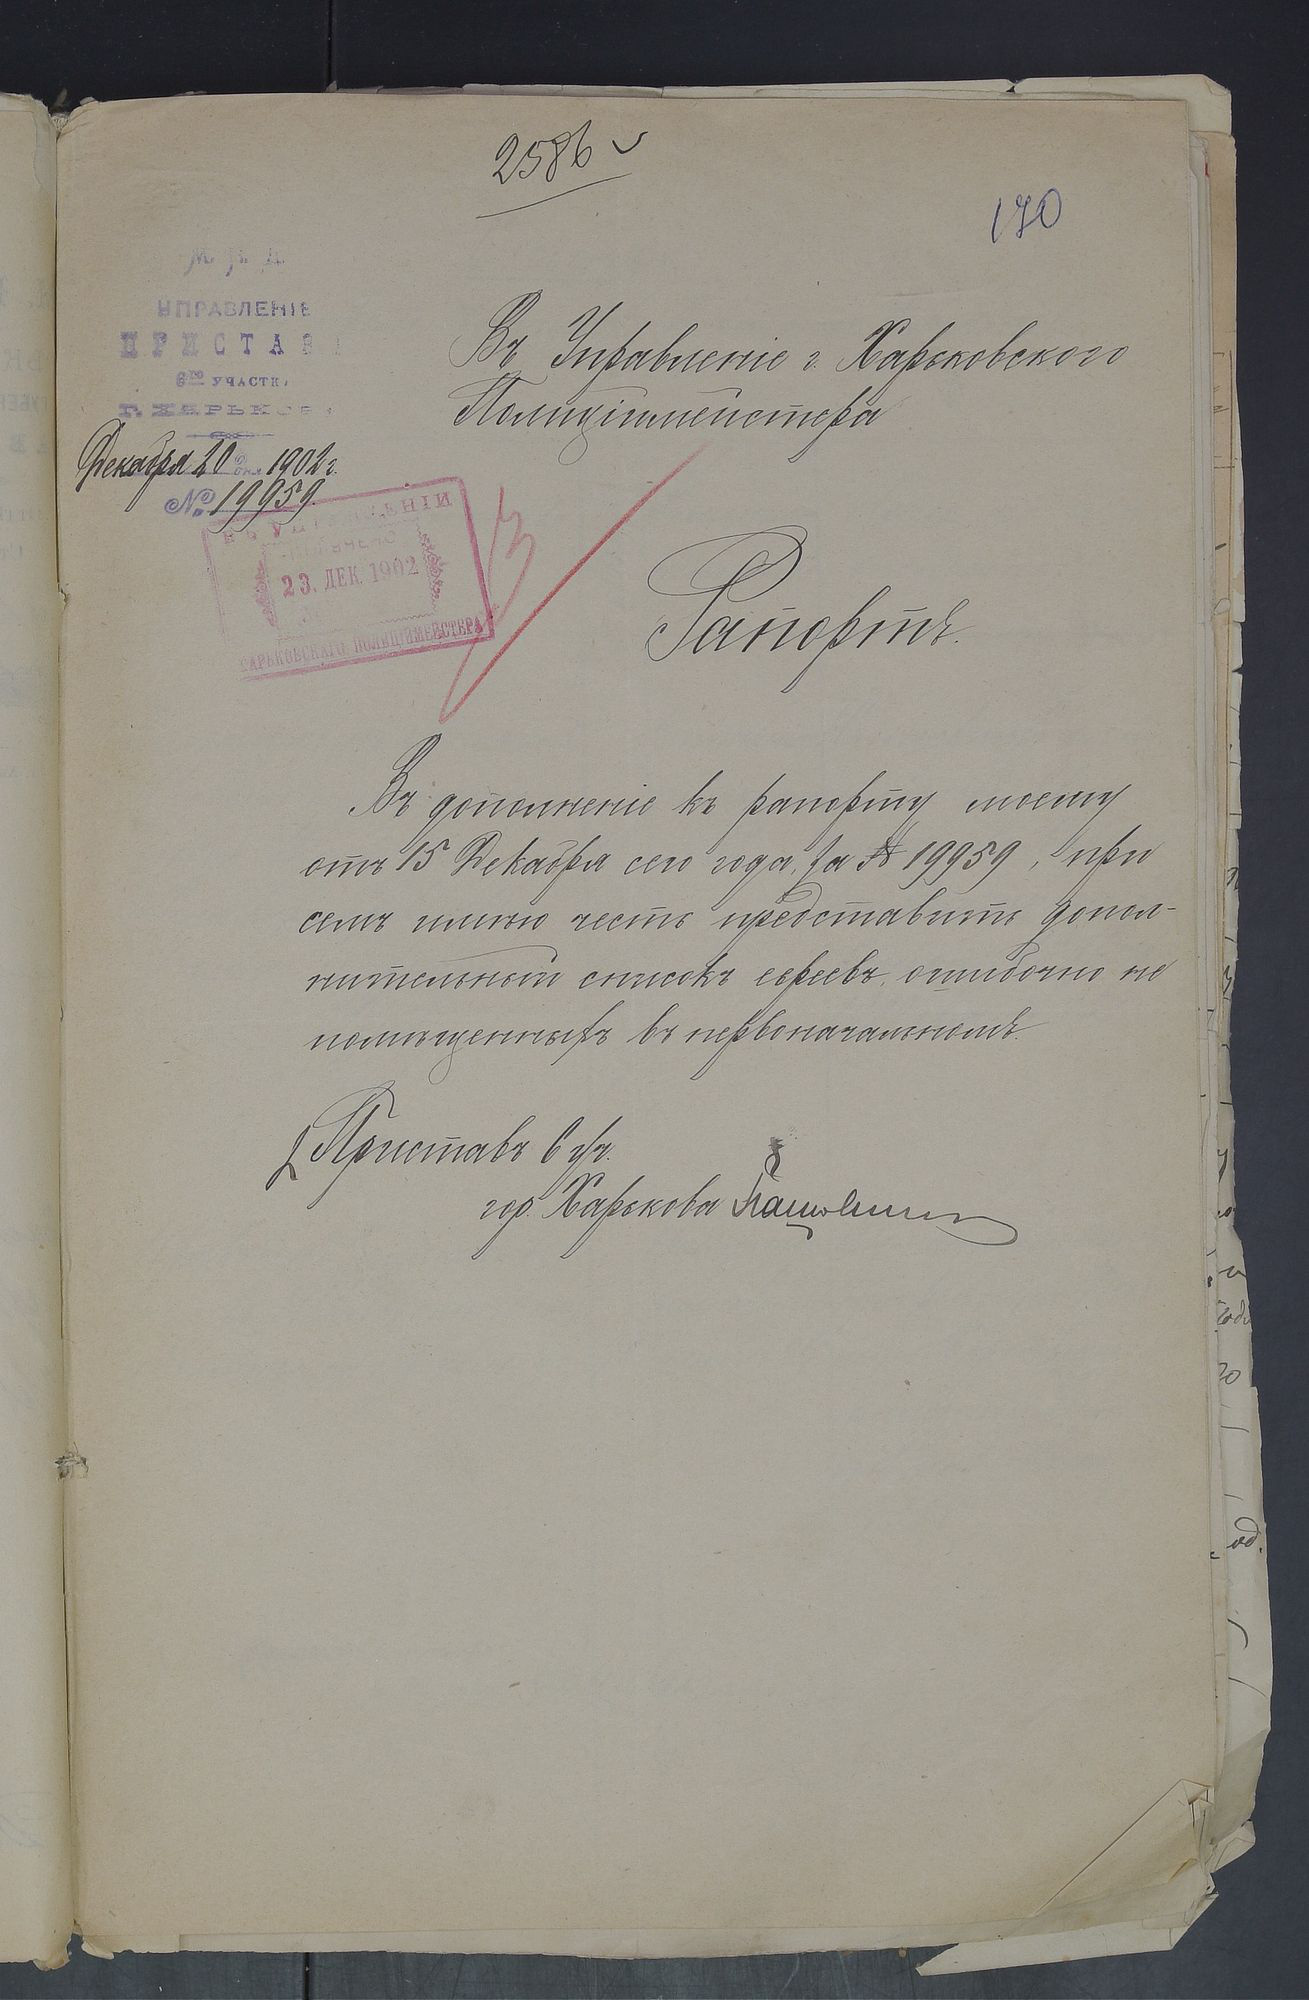 2586
170
М. В. Д.
УПРАВЛЕНІЕ
ПРИСТАВА
6го УЧАСТКА
Г. ХАРЬКОВА
Декабря 20 дня 1902 г.
№ 19959
Въ Управленіе г. Харьковского
Полиціймейстера
ВЪ УПРАВЛЕНІИ
ПОЛУЧЕНО
23. ДЕК. 1902
ХАРЬКОВСКАГО ПОЛИЦІЙМЕЙСТЕРА
Рапортъ.
Въ дополненіе къ рапорту моему
отъ 15 Декабря сего года, за № 19959, при
семъ имѣю честь представить допол-
нительный списокъ евреевъ, ошибочно не
помѣщенныхъ въ первоначальномъ.
Приставъ 6 уч.
гор. Харькова